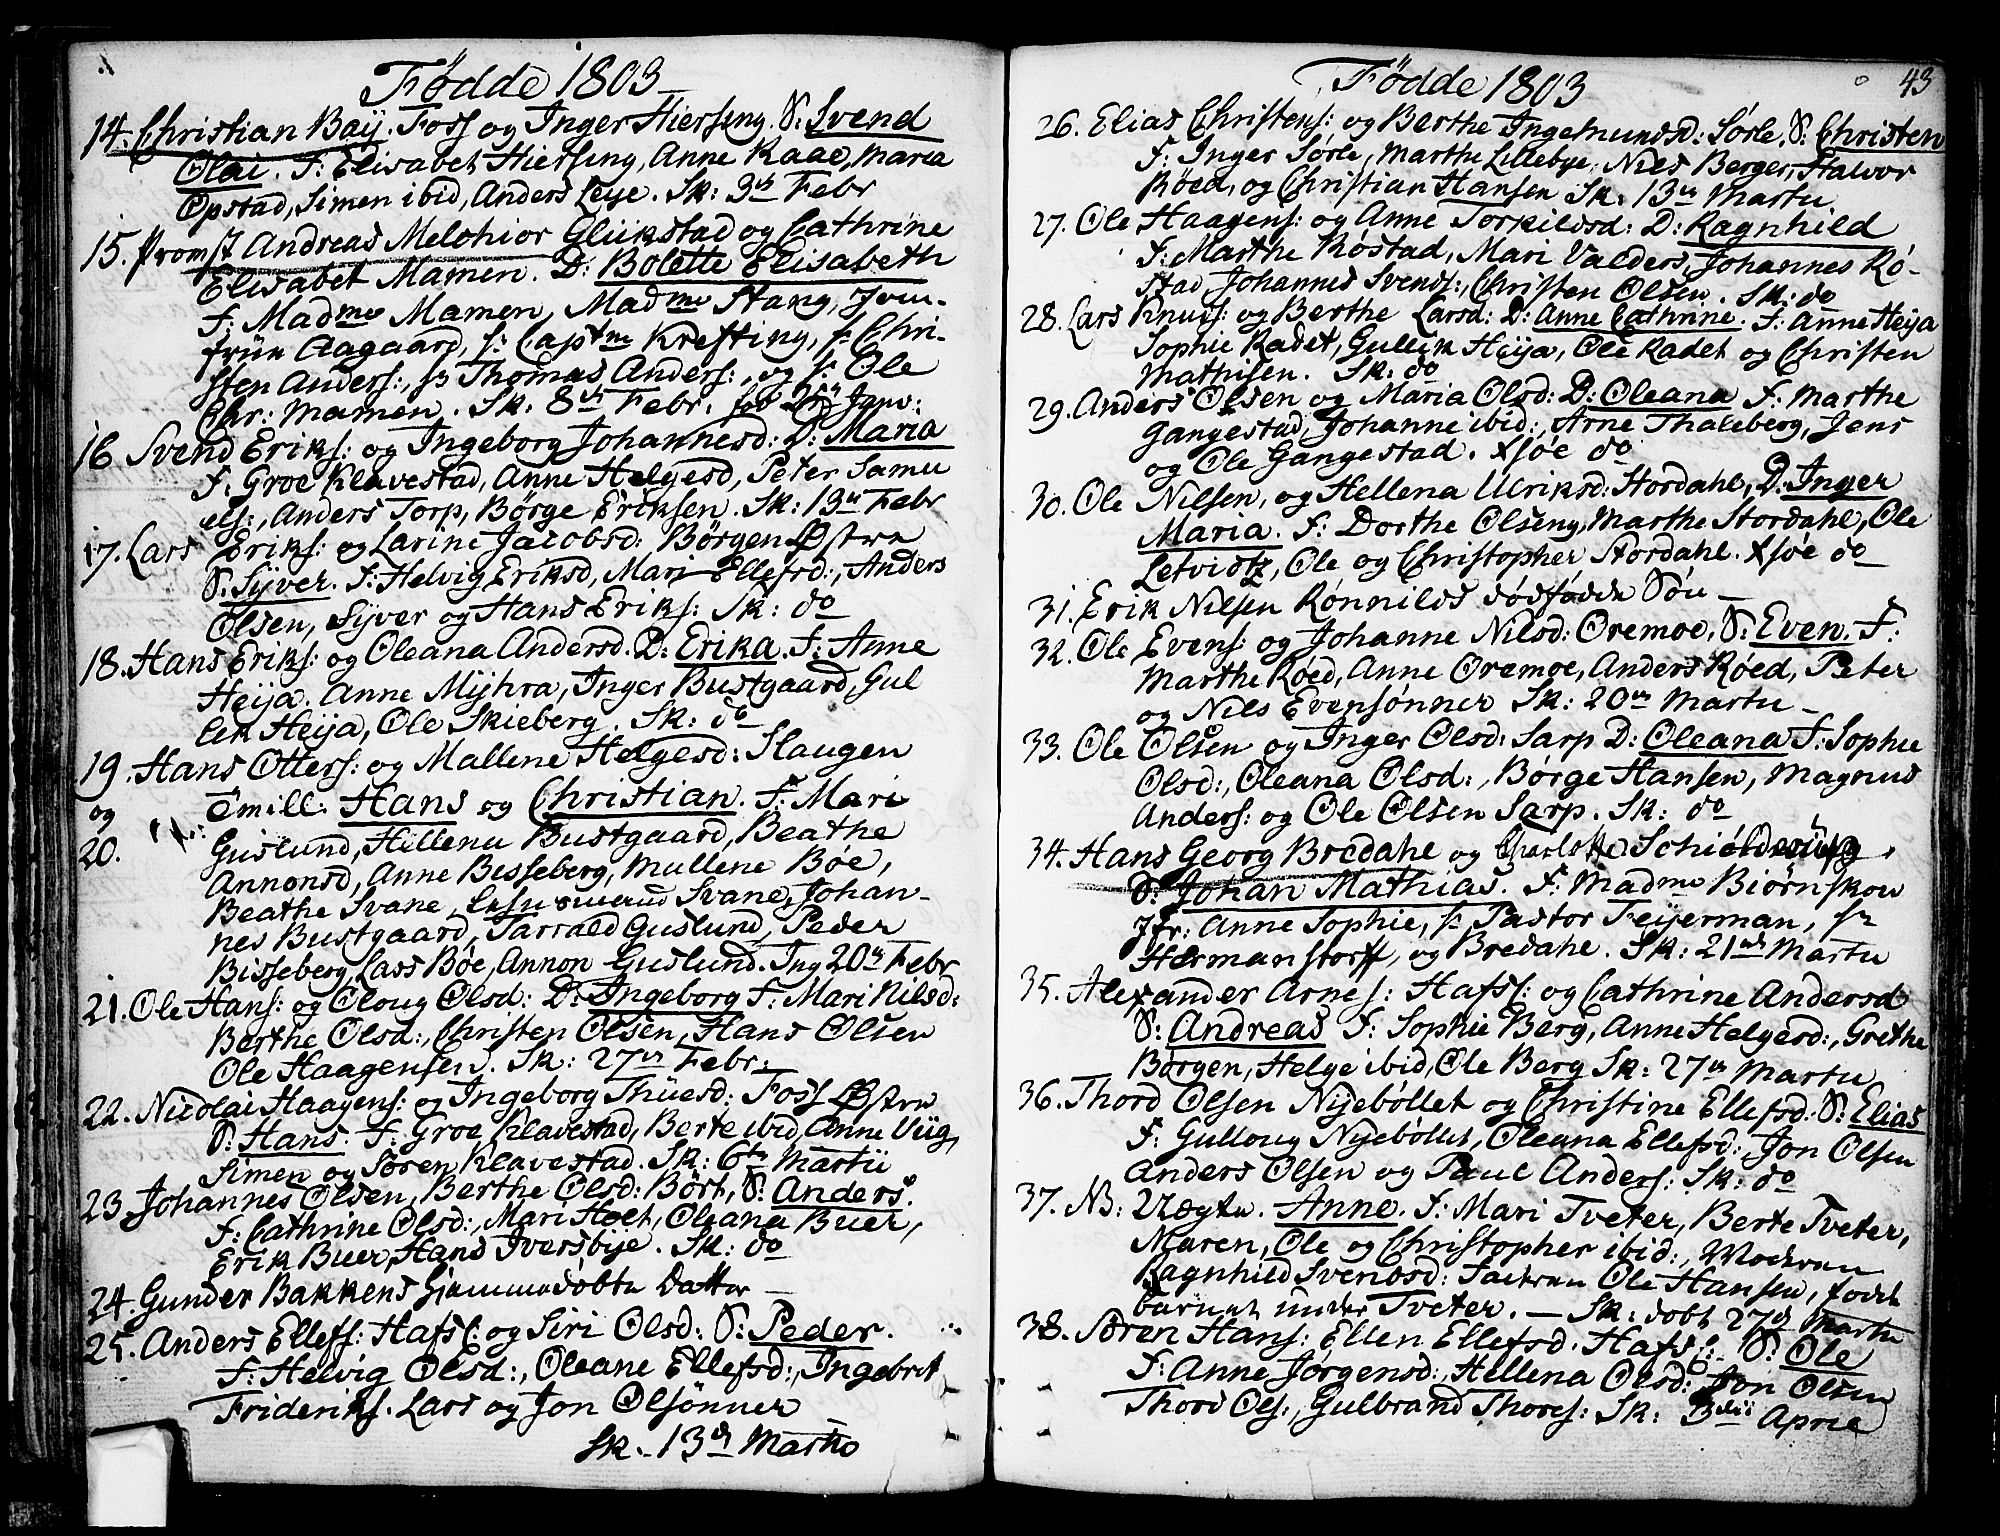 Fødde 1803
14. Christian Baÿ. Foss og Inger Hiersing. S: Svend
Olai. F: Elisabet Hiersing, Anne Raae, Maria
Opstad, Simen ibid, Anders Leye. Sk: 3die Febr
15. Prom:st Andreas Melchior Glükstad og Cathrine
Elisabet Mamen. D: Bolette Elisabeth
F: Madme Mamen, Madme Stang, Jom-
früe Aagaard, hr Captn Krefting, hr Chri-
sten Anders:, hr Thomas Anders:, og hr Ole
Chr: Mamen. Sk: 8de Febr: Janv:
16 Svend Eriks: og Ingeborg Johannesd: D: Maria
F: Groe Klavestad, Anne Helgesd, Peter Samu
els:, Anders Torp, Børge Eriksen. Sk: 13de Febr
17. Lars Eriks: og Larine Jacobsd: Børgen Østre
S: Sÿver. F: Helvig Eriksd, Mari Ellefsd:, Anders
Olsen, Sÿver og Hans Eriks: Sk: do
18. Hans Eriks: og Oleana Andersd. D: Erika. F: Anne
Heija. Anne Mÿhra, Inger Bustgaard, Gul
lek Heija, Ole Skieberg. Sk: do
19 Hans Otters: og Mallene Helgesd: Haugen
og Tvill: Hans og Christian. F: Mari
20. Guslund, Hellena Bustgaard, Beathe
Annonsd, Anne Bisseberg, Mallene Bøe,
Beathe Svane, Svane, Johan-
nes Bustgaard, Tarrald Guslund, Peder
Bisseberg, Lars Bøe, Annon Guslund. Ing 20de Febr
21. Ole Hans: og Oloug Olsd: D: Ingeborg F: Mari Nilsd:
Berthe Olsd:, Christen Olsen, Hans Olsen
Ole Haagensen. Sk: 27de Febr:
22. Nicolai Haagens: og Ingeborg Thüesd: Foss Østre
S: Hans. F: Groe Klavestad, Berte ibid, Anne Viig,
Simen og Søren Klavestad. Sk: 6te Martii
23. Johannes Olsen, Berthe Olsd: Børt, S: Anders.
F: Cathrine Olsd:, Mari Holt, Oleana Buer,
Erik Buer, Hans Iversbÿe. Sk: do
24. Gunder Bakkens Hiemmedøbte Datter —
25. Anders Ellefs: Hafsl: og Siri Olsd: S: Peder.
F: Helvig Olsd:, Oleane Ellefsd:, Ingebret
Frideriks. Lars og Jon Olsønner
Sk. 13de Martio
Fødde 1803
43
26. Elias Christens: og Berthe Ingemundsd: Sørle. S: Christen
F: Inger Sørle, Marthe Lillebye, Nils Berger, Halvor
Røed, og Christian Hansen Sk: 13de Martii
27. Ole Haagens: og Anne Torkildsd: D: Ragnhild
F: Marthe Røstad, Mari Valders, Johannes Rø-
stad Johannes Svends:, Christen Olsen. Sk: do
28. Lars Knuds: og Berthe Larsd: D: Anne Cathrine. F: Anne Heija
Sophie Radet, Gullik Heija, Ole Radet og Christen
Mathisen. Sk: do
29. Anders Olsen og Maria Olsd: D: Oleana F: Marthe
Gangestad, Johanne ibid:, Arne Thaleberg, Jens
og Ole Gangestad. Xsøe do
30. Ole Nilsen, og Hellena Ulriksd: Stordahl, D. Inger
Maria. F: Dorthe Olseng, Marthe Stordahl, Ole
Letvidtz, Ole og Christopher Stordahl. Xsøe do
31. Erik Nilsen Rønnilds dødfødde Søn —
32. Ole Evens: og Johanne Nilsd: Oremoe. S: Even. F:
Marthe Røed, Anne Oremoe, Anders Røed, Peter
og Nils Evensønner Sk: 20de Martii —
33. Ole Olsen og Inger Olsd: Sarp D: Oleana F: Sophie
Olsd:, Oleana Olsd:, Børge Hansen, Magnus
Anders: og Ole Olsen Sarp. Sk: do
34. Hans Georg Bredahl og
S: Johan Mathias. F: Madme Biørnskou
Jfr: Anne Sophie, hr Pastor Feÿerman, hr
Hermanstorff, og Bredahl. Sk: 21de Martii
35. Alexander Arnes: Hafsl: og Cathrine Andersd
S: Andreas F: Sophie Berg, Anne Helgesd:, Grethe
Børgen, Helge ibid, Ole Berg Sk: 27de Martii
36. Thord Olsen Nÿebøllet og Christine Ellefsd: S: Elias
F: Gulloug Nÿebøllet, Oleana Ellefsd:, Jon Olsen
Anders Olsen og Paul Anders: Sk: do
37. NB: Uægte. Anne. F: Mari Tveter, Berte Tveter,
Maren, Ole og Christopher ibid:, Moderen
Ragnhild Svendsd: Faderen Ole Hansen, født
barnet under Tveter. — Sk: døbt 27de Martii
38. Søren Hans: Ellen Ellefsd. Hafsl: S: Ole
F: Anne Jørgensd: Hellena Olsd: Jon Olsen
Thord Ols:, Gulbrand Thores: Sk: 3die April